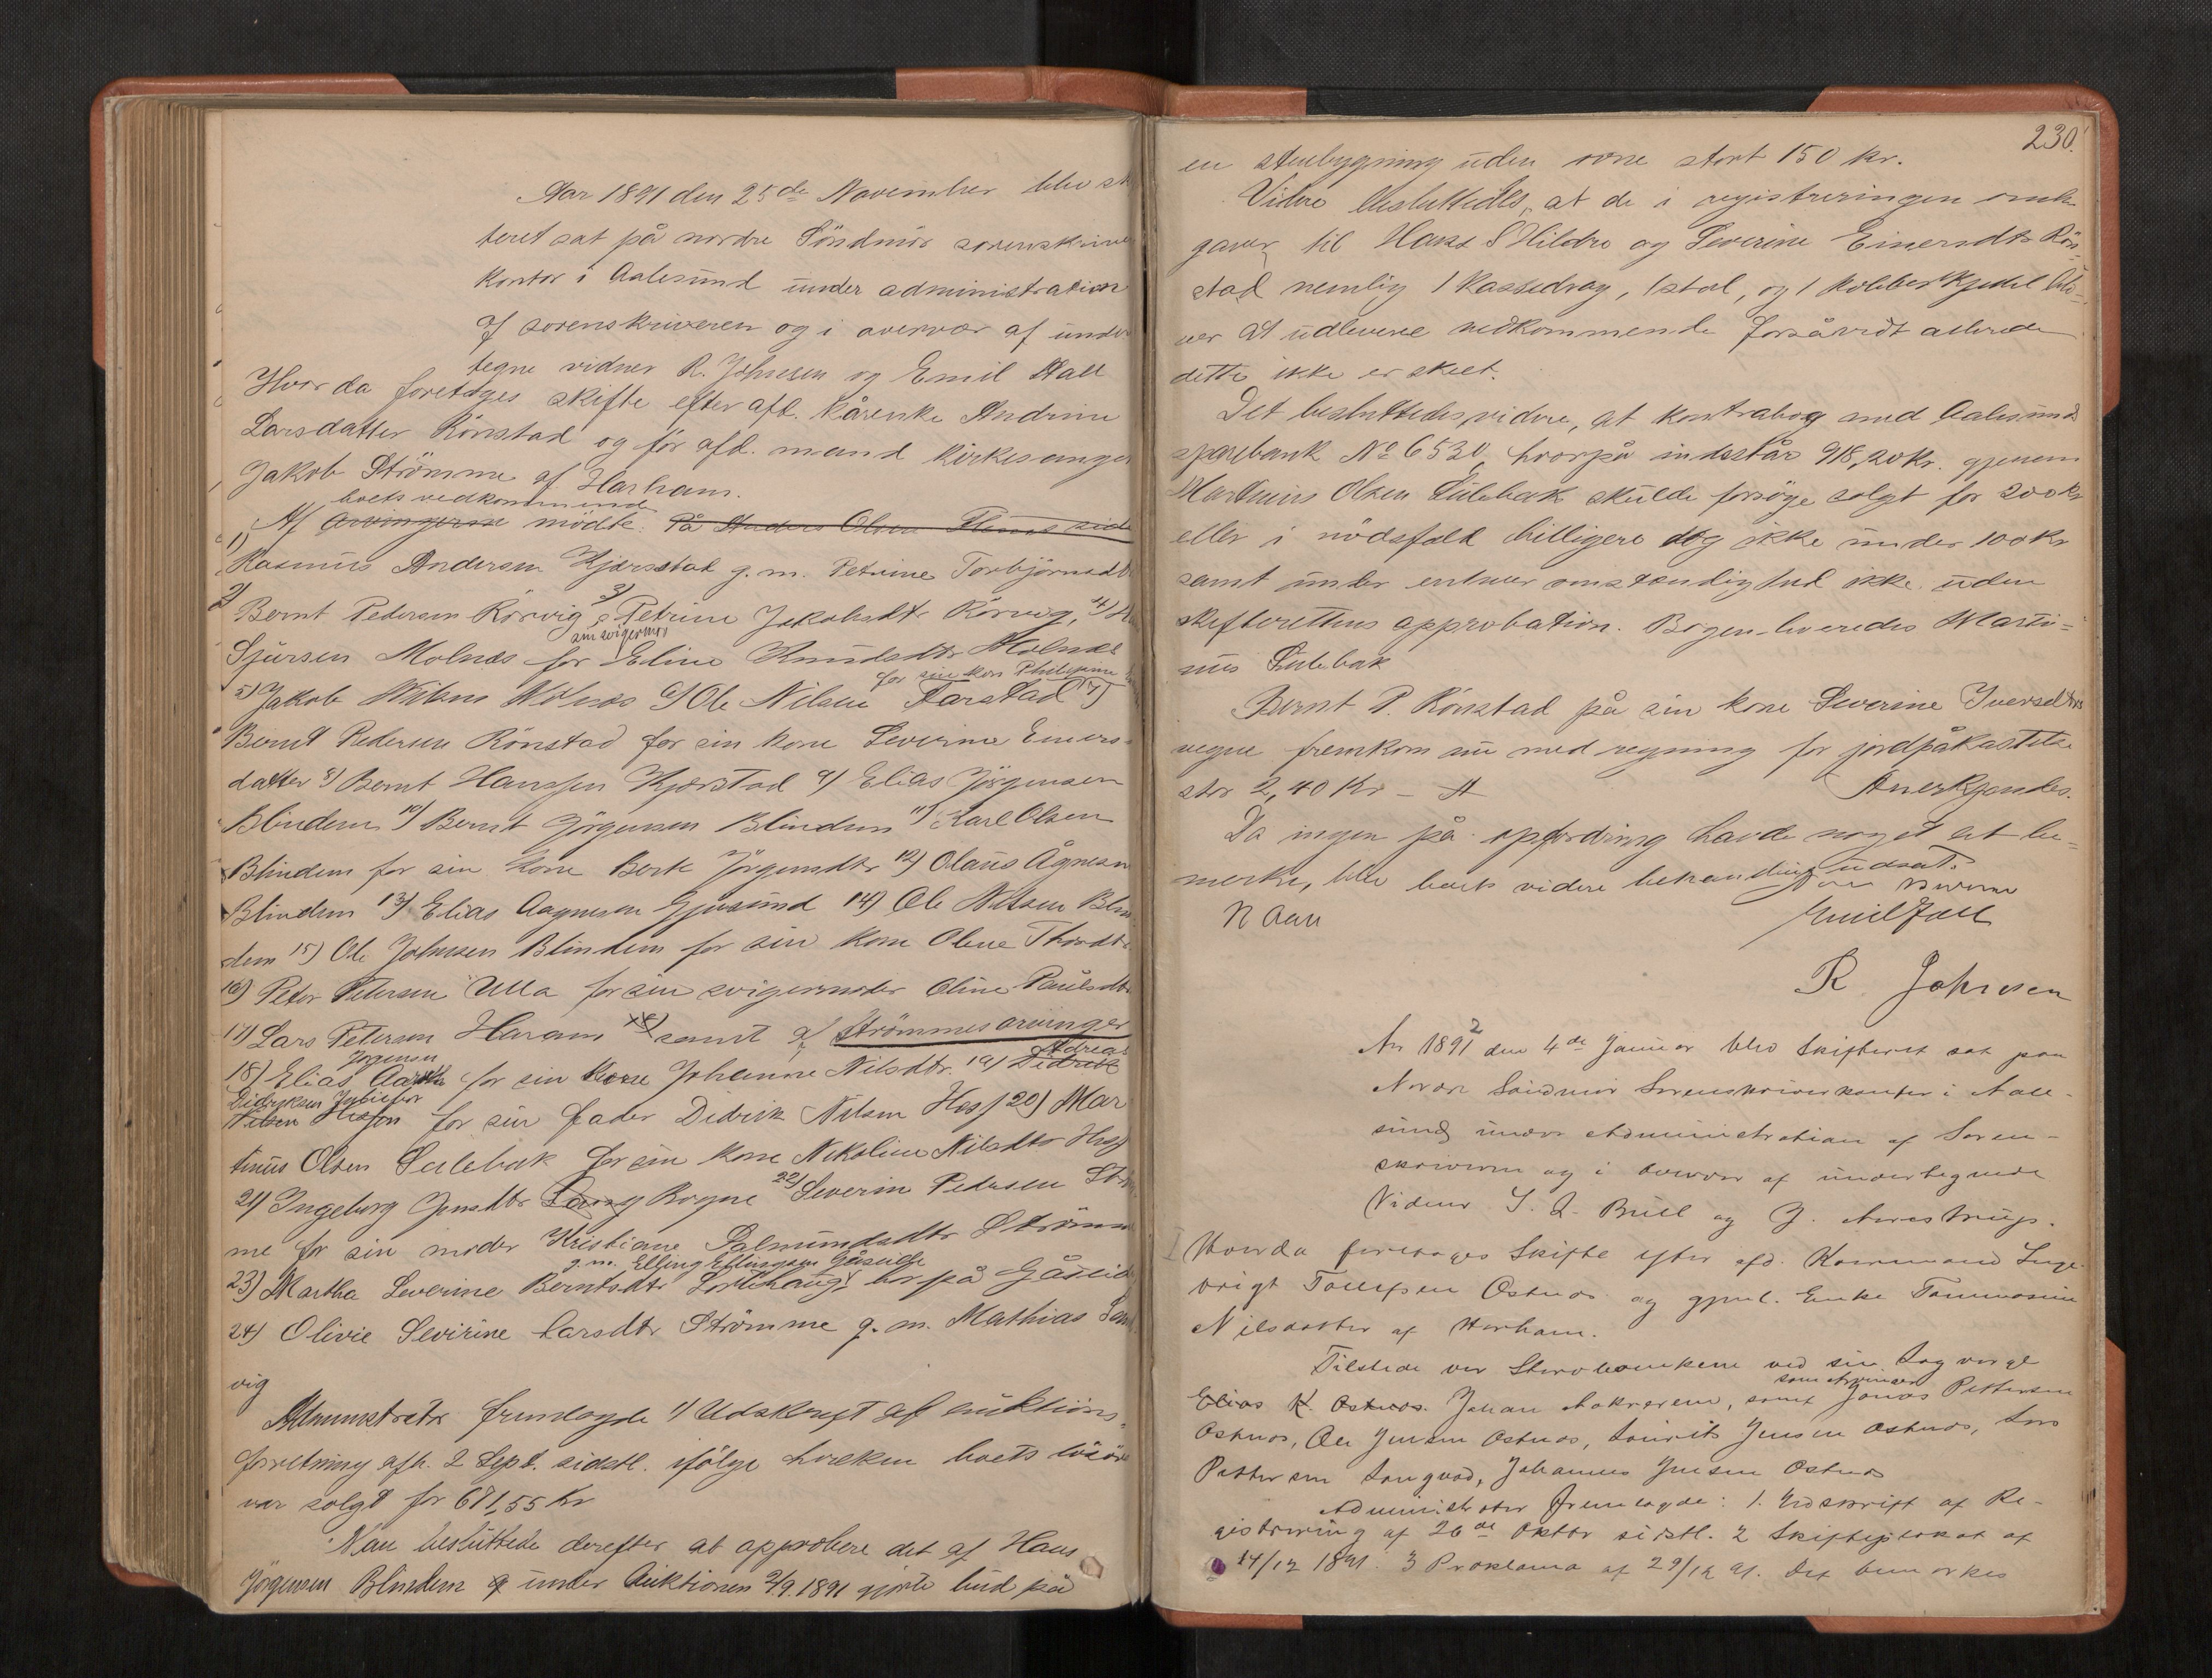 Aar 1891 den 25de November blev sk
teret sat på nordre Söndmör sorenskrive
kontor i Aalesund under administration
af sorenskriveren og i overvær af under
tegne vidner R. Johnsen og Emil Fall
Hvor da foretoges skifte efter afd. kårenke Andrine
Larsdatter Rönstad og for afd. mand kirkesanger
Jakob Strömme af Harham.
boets vedkommende
Af arvingerne mödte. På Anders Olsen
1) Rasmus Andersen Kjærstad g. m. Petrine Torbjörnsdt
2) Bernt Pedersen Rörvig 3) Petrine Jakobsdtr Rörvig, 4)
sin svigermor
Sjursen Molnæs for Eline Knudsdtr Molnæs
for sin kone Philipine
5) Jakob Nilsen Molnæs 6) Ole Nilsen Farstad 7)
Bernt Pedersen Rönstad for sin kone Severine Einers-
datter 8) Bernt Hanssen Kjærstad 9) Elias Jörgensen
Blindem 10) Bernt Jörgensen Blindem 11) Karl Olsen
Blindem for sin kone Berte Jörgensdtr 12) Olaus Ågnesen
Blindem 13) Elias Aagnesen Gjusund 14) Ole Nilsen Blin
dem 15) Ole Johnsen Blindem for sin kone Oline
16) Peter Petersen Ulla for sin svigermoder Oline Paulsdtr
17) Lars Petersen Haram samt af Strömmes arvinger
Jörgensen Adrias
18) Elias for sin kone Johanne Nilsdtr. 19) Didrik
Didriksen
Nilsen Hessen for sin fader Didrik Nilsen Hess 20) Mar
tinus Olsen Sulebak for sin kone Nikoline Nilsdtr Hess
21) Ingeborg Jensdtr Rogne 22) Severin Pedersen Ström
me for sin moder Kristiane Salmundsdtr Strömme
g. m. Elling Ellingsen Gåseide
23) Martha Severine Berntsdtr bor på Gåseide
24) Olivie Sevirine Larsdtr Strömme g. m. Mathias San
vig
Administrator fremlagde 1) Udskrift af auktions-
forretning afh. 2 Sept. sidstl. ifölge hvilken boets lösöre
var solgt for 671,55 Kr
Man besluttede derefter at approbere det af Hans
Jörgensen Blindem under Auktionen 2/9. 1891 gjorte bud på
230.
en stuebygning uden ovne stort 150 kr.
Videre besluttedes, at de i registreringen
gaver til Hans S Hildre og Severine Einersdtr Rön-
stad nemlig 1 kassedrag, 1 stol, og 1 kobberkjedel bli-
ver at udlevere vedkommende forsåvidt allerede
dette ikke er skeet.
Det besluttedes videre, at kontrabog med Aalesunds
sparebank No 6530, hvorpå indestår 918,20 kr. gjennem
Martinus Olsen Sulebak skulde forsöge solgt for 200 kr
eller i nödsfald billigere dog ikke under 100 kr
samt under enhver omstændighed ikke uden
skifterettens approbation. Bogen leveredes Marti-
nus Sulebak
Bernt P. Rönstad på sin kone Severine Iversdtrs
vegne fremkom nu med regning for jordpåkastelse
stor 2,40 Kr - A Anerkjendes.
Da ingen på opfordring havde noget at be-
merke, blev boets videre behandling udsat.
N Aau
Emil Fall
R. Johnsen
Ar 1892 den 4de Januar blev Skifteret sat paa
Nordre Söndmör Sorenskriverkontor i Aale-
sund under Administration af Soren-
skriveren og i overvær af undertegnede
Vidner J. L. Bull og J. Aarestrup.
Hvorda foretoges Skifte efter afd. Kaarmand Inge-
brigt Tollefsen Ostnæs og gjenl. Enke Tommasine
Nilsdatter af Harham.
Tilstede var Stervboenken ved sin Lagværge
som Arvinger
Elias K. Ostnæs. Johan samt Jonas Pettersen
Ostnæs, Ole Jensen Ostnæs, Laurits Jensen Ostnæs, Lars
Pettersen Longvad, Johannes Jensen Ostnæs
Administrator fremlagde: 1. Udskrift af Re-
gistrering af 26de Oktbr sidstl. 2 Skifteplakat af
14/12 1891. 3 Proklama af 29/12 91. Det bemærkes